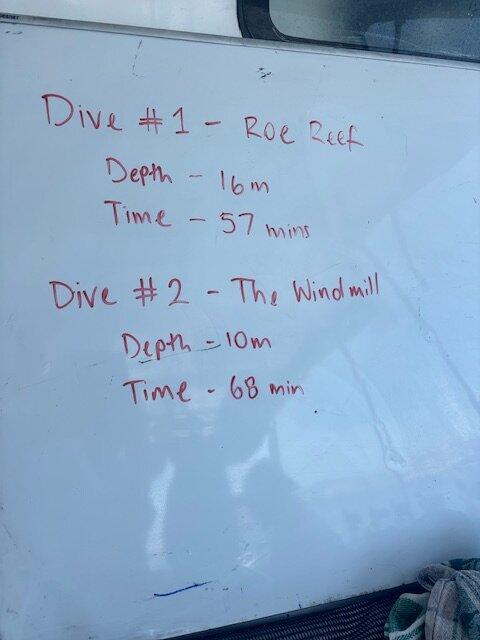 Dive #1 - Roe Reef
Depth - 16m
Time - 57 mins
Dive #2 - The Windmill
Depth - 10m
Time - 68 min